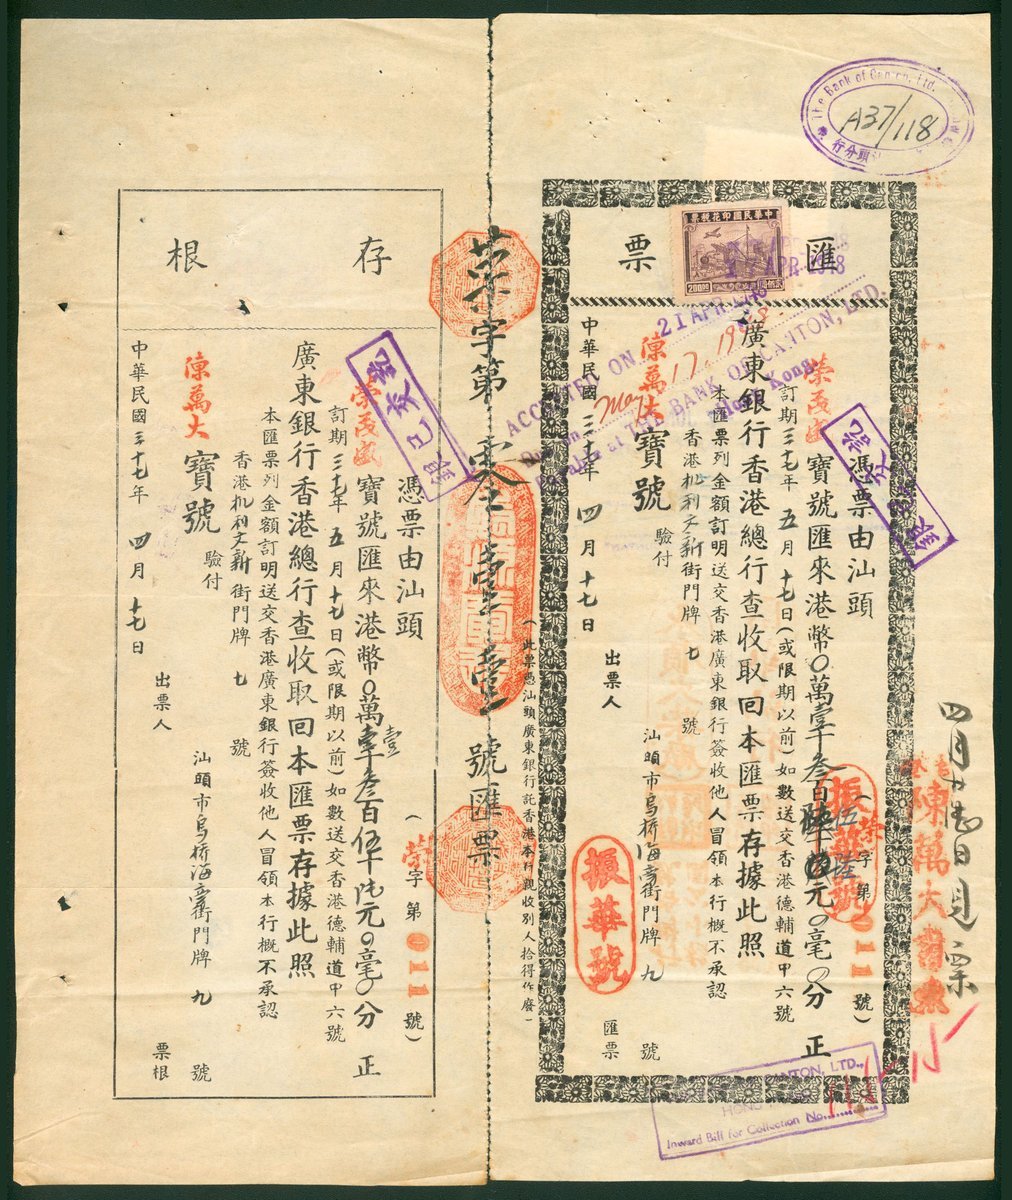 The Bank of Canton, Ltd.
A37/118
汕頭分行
匯票
中華民國印花稅票
200.00
21 APR 1948
APR 1948
ACCEPTED ON
Due on May 17, 1948
Payable at THE BANK OF CANTON, LTD.
Hong Kong
(榮字第011號)
憑票由汕頭
榮茂盛寶號匯來港幣0萬壹千叁百伍十陸元0毫0分正
訂期三十七年五月十七日(或限期以前)如數送交香港德輔道中六號
廣東銀行香港總行查收取回本匯票存據此照
本匯票列金額訂明送交香港廣東銀行簽收他人冒領本行概不承認
香港機利文新街門牌七號
陳萬大寶號驗付
中華民國三十七年四月十七日
出票人
汕頭市烏橋海旁街門牌九號
匯票
振華號
振華號
陳萬大
HONG KONG
Inward Bill for Collection No.
(此票憑汕頭廣東銀行託香港本行親收別人拾得作廢)
榮字第零壹壹號匯票
存根
(榮字第011號)
憑票由汕頭
榮茂盛寶號匯來港幣0萬壹千叁百伍十陸元0毫0分正
訂期三十七年五月十七日(或限期以前)如數送交香港德輔道中六號
廣東銀行香港總行查收取回本匯票存據此照
本匯票列金額訂明送交香港廣東銀行簽收他人冒領本行概不承認
香港機利文新街門牌七號
陳萬大寶號驗付
中華民國三十七年四月十七日
出票人
汕頭市烏橋海旁街門牌九號
票根